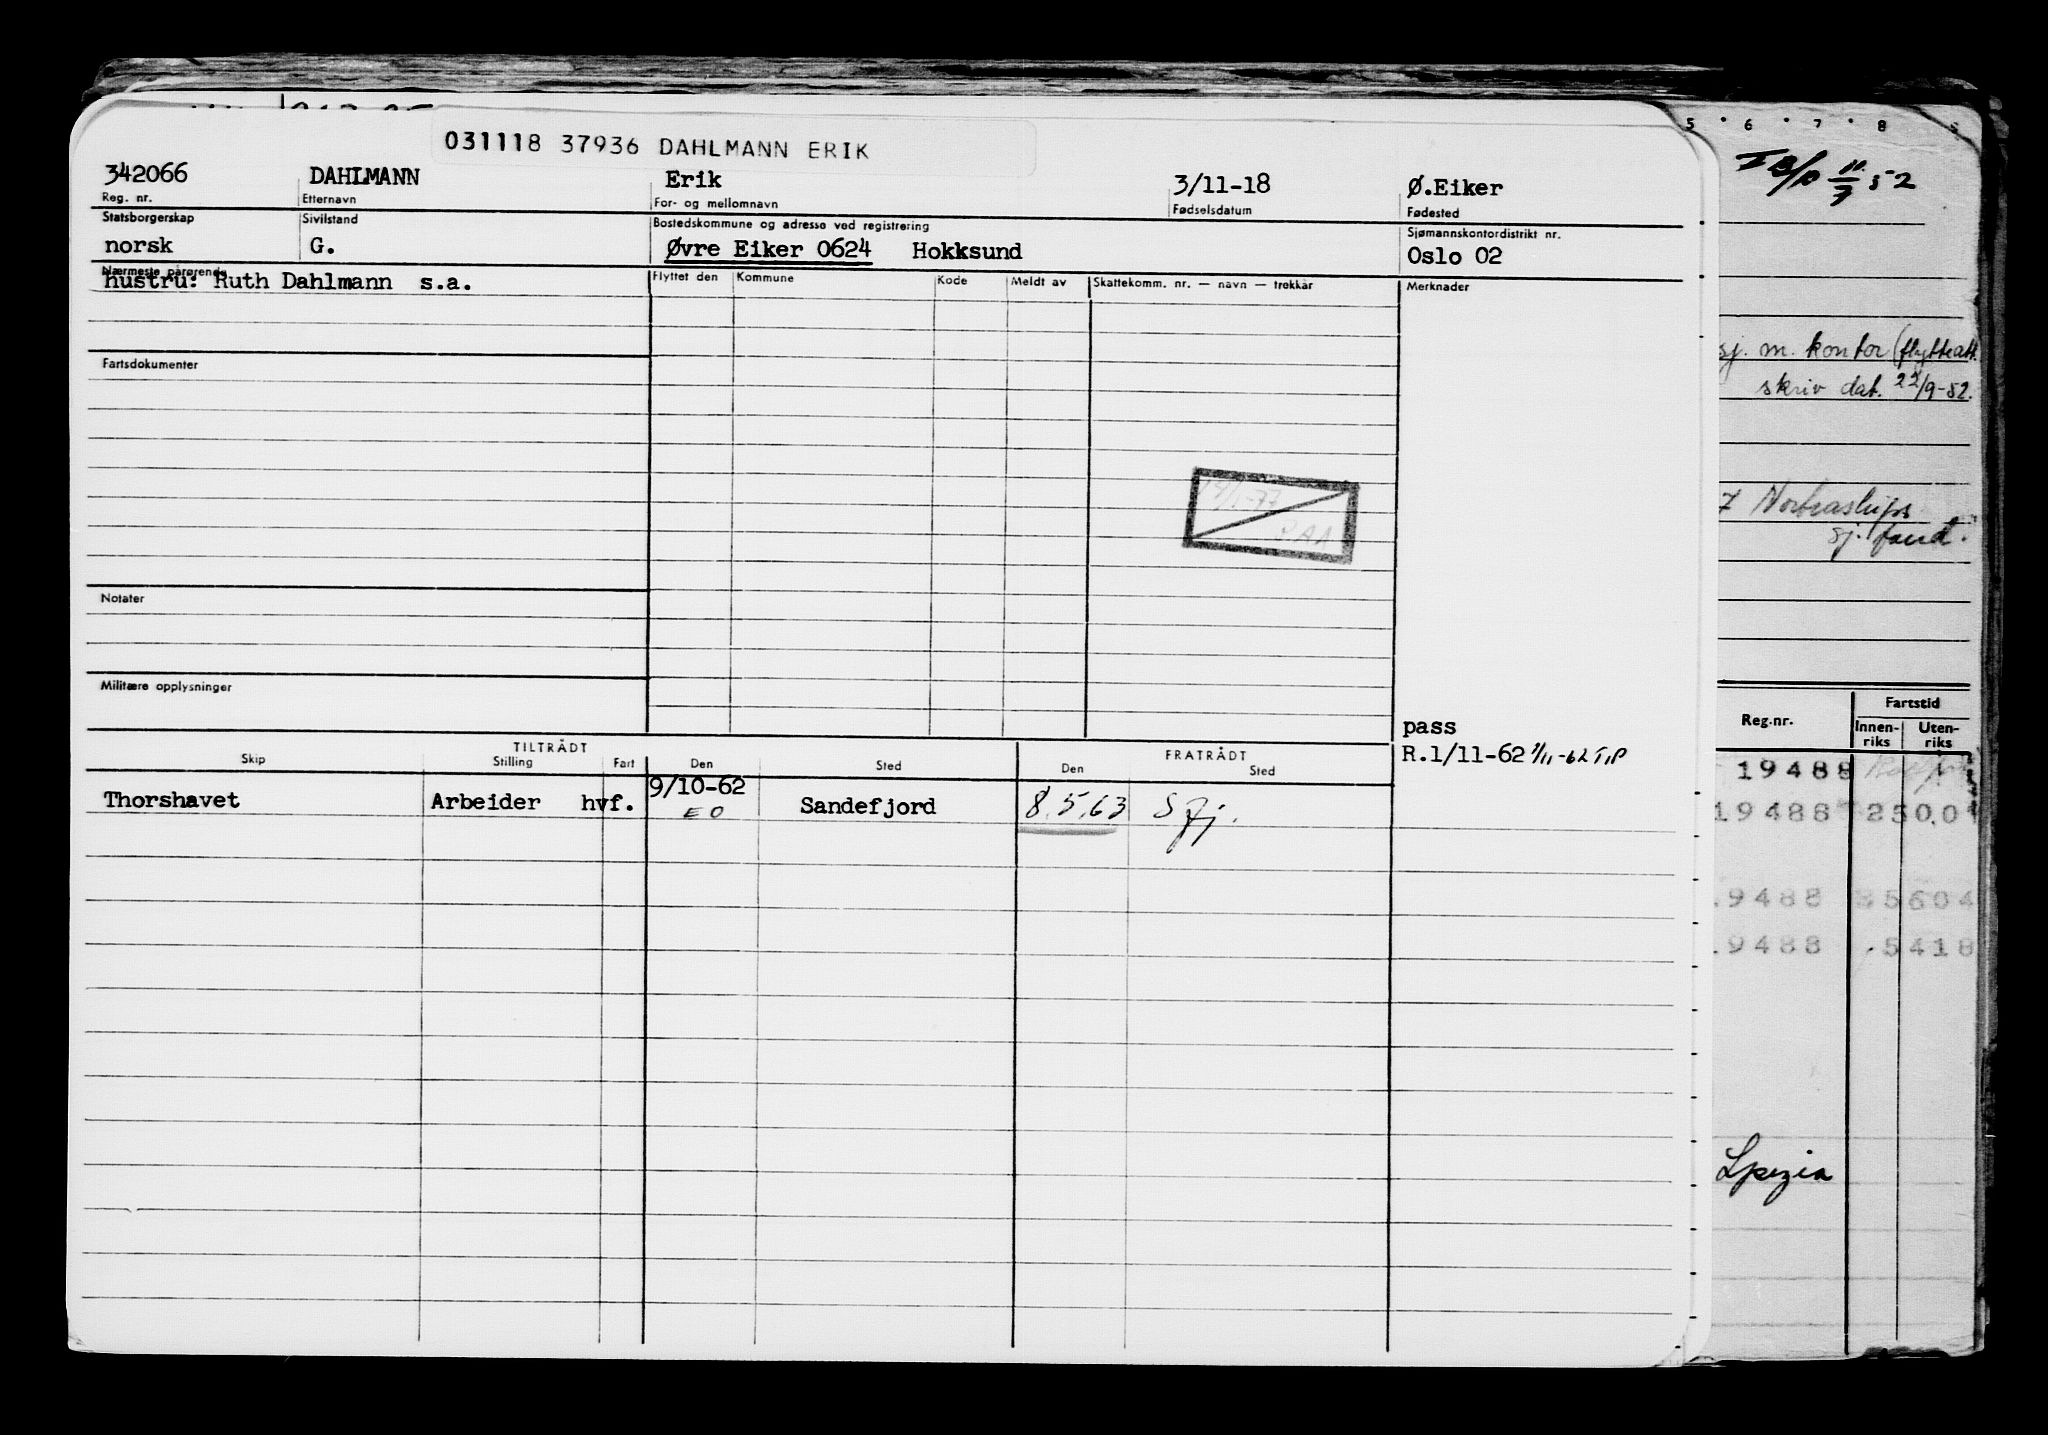 031118 37936 DAHLMANN ERIK
342066 DAHLMANN Erik 3/11-18 Ø.Eiker
Reg. nr. Etternavn For- og mellomnavn Fødselsdatum Fødested
Statsborgerskap Sivilstand Bostedskommune og adresse ved registrering Sjømannskontordistrikt nr.
norsk G. Øvre Eiker 0624 Hokksund Oslo 02
Nærmeste pårørende Flyttet den Kommune Kode Meldt av Skattekomm. nr. — navn — trekkår Merknader
hustru: Ruth Dahlmann s.a.
Fartsdokumenter
Notater
Militære opplysninger
pass
R.1/11-62
TILTRÅDT FRATRÅDT
Skip Stilling Fart Den Sted Den Sted
Thorshavet Arbeider hvf. 9/10-62 Sandefjord 8.5.63 Sfj.
EO
5 6 7 8
52
sj. m. kontor (flytteatt.
skriv dat. 22/9-52.
Nortraships
sj. fond.
Reg.nr. Fartstid
Innen-riks Uten-riks
19488
19488 250.0
9488 5604
9488 5418
Spezia